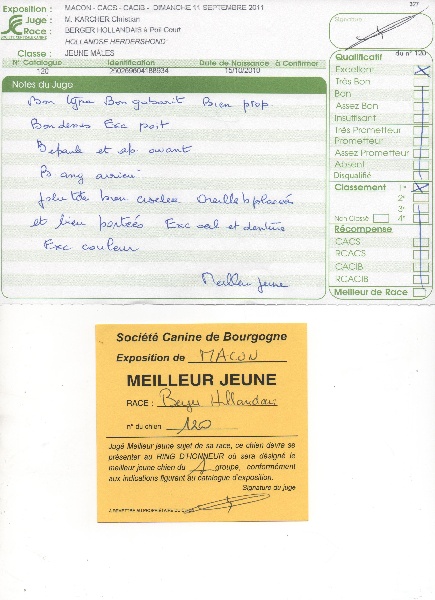 327
Exposition : MACON - CACS - CACIB - DIMANCHE 11 SEPTEMBRE 2011
Juge : M. KARCHER Christian
Race : BERGER HOLLANDAIS à Poil Court
HOLLANDSE HERDERSHOND
Classe : JEUNE MALES
Signature
N° Catalogue Identification Date de Naissance à Confirmer
120 250269604188934 15/10/2010
du n° 120
Notes du Juge
Bon type Bon gabarit Bien prop.
Bon dessus Exc port
Epaule et ap avant
B ang arrière
Jolie tête bien ciselée Oreilles b placées
et bien portées Exc oeil et denture
Exc couleur
Meilleur jeune
Qualificatif
Excellent
Très Bon
Bon
Assez Bon
Insuffisant
Très Prometteur
Prometteur
Assez Prometteur
Absent
Disqualifié
Classement 1°
2°
3°
Non Classé 4°
Récompense
CACS
RCACS
CACIB
RCACIB
Meilleur de Race
Société Canine de Bourgogne
Exposition de MACON
MEILLEUR JEUNE
RACE : Berger Hollandais
n° du chien 120
Jugé Meilleur jeune sujet de sa race, ce chien devra se
présenter au RING D'HONNEUR où sera désigné le
meilleur jeune chien du 1 groupe, conformément
aux indications figurant au catalogue d'exposition.
Signature du juge
A REMETTRE AU PROPRIÉTAIRE DU